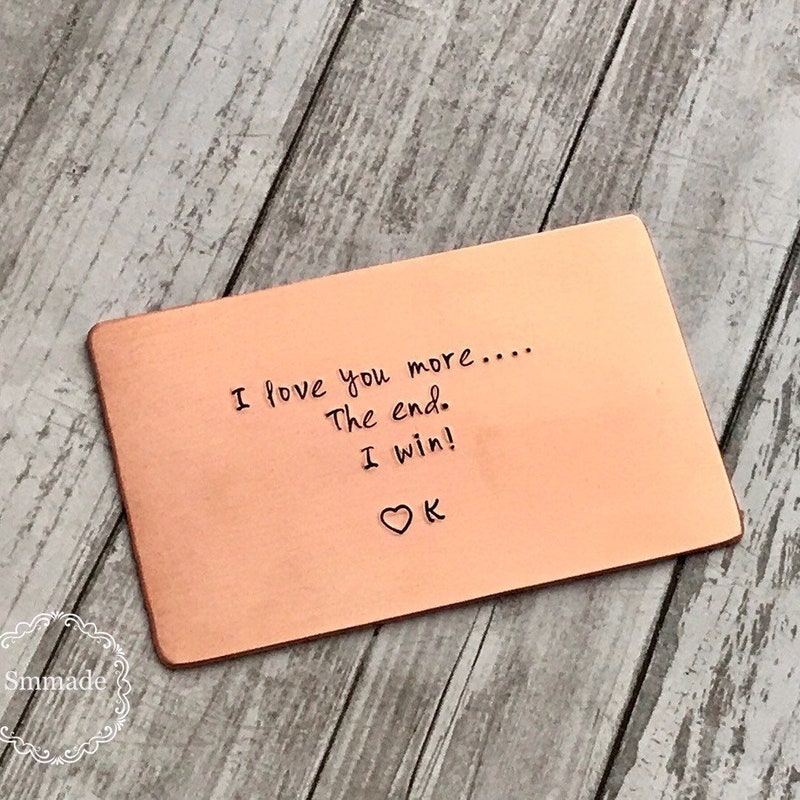 I love you more....
The end.
I win!
♡ K
Smmade